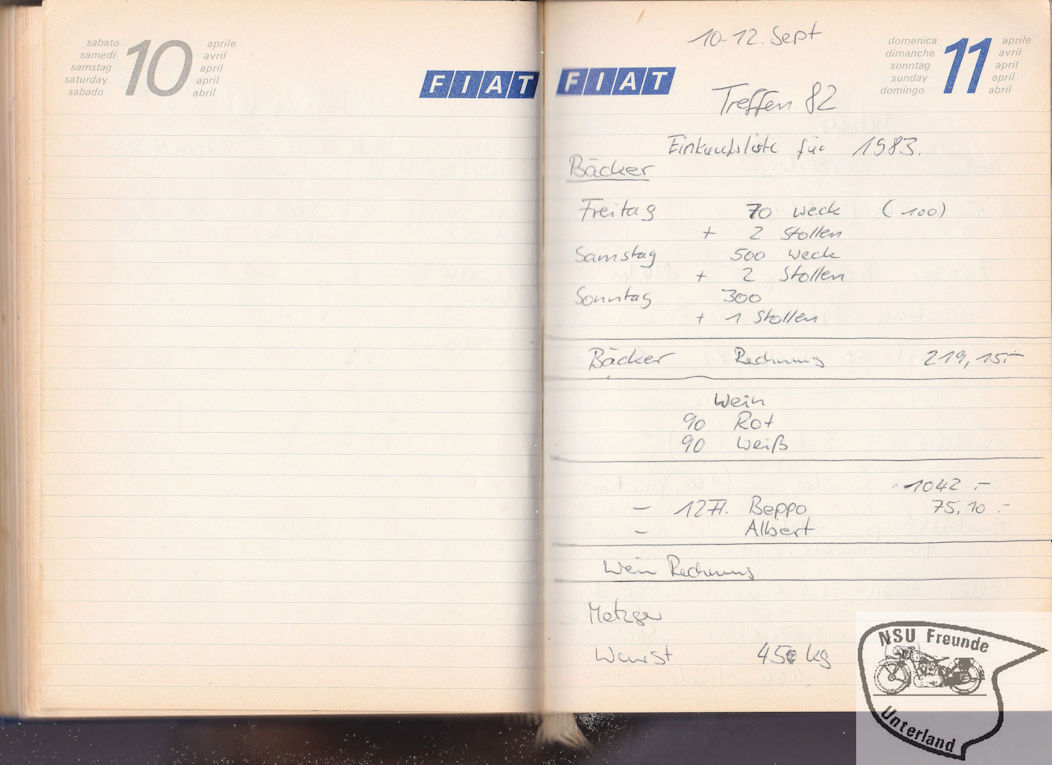 sabato
samedi
samstag
saturday
sabado
10
aprile
avril
april
april
abril
FIAT
FIAT
domenica
dimanche
sonntag
sunday
domingo
11
aprile
avril
april
april
abril
10-12. Sept
Treffen 82
Einkaufsliste für 1983.
Bäcker
Freitag 70 Weck (100)
+ 2 Stollen
Samstag 500 Weck
+ 2 Stollen
Sonntag 300
+ 1 Stollen
Bäcker Rechnung 219,15.-
Wein
90 Rot
90 Weiß
1042.-
- 12 Fl. Beppo 75,10.-
- Albert
Wein Rechnung
Metzger
Wurst kg
NSU Freunde
Unterland